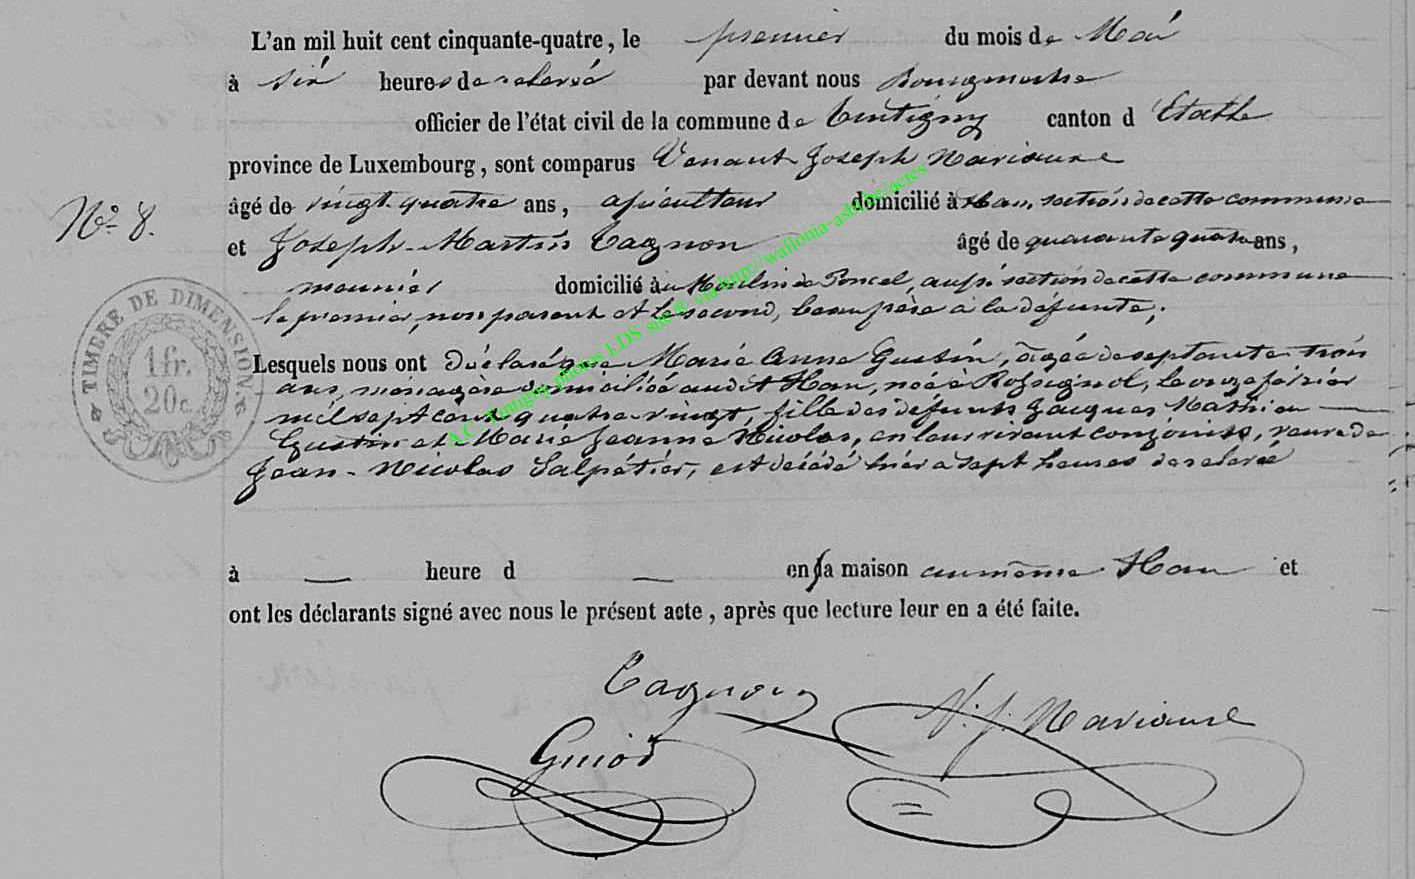 L'an mil huit cent cinquante-quatre, le premier du mois de Mai
à six heures de relevée par devant nous Bourgmestre
officier de l'état civil de la commune de Tintigny canton d'Etalle
province de Luxembourg, sont comparus Venant Joseph
N° 8.
âgé de vingt quatre ans, apiculteur domicilié à Han, section de cette commune
et Joseph-Martin Cagnon âgé de quarante quatre ans,
meunier domicilié au Moulin de Poncel, aussi section de cette commune
le premier, non parent et le second, beau père à la défunte,
Lesquels nous ont déclaré que Marie Anne Gustin, âgée de septante trois
ans, ménagère domiciliée audit Han, née à Rossignol, le onze février
mil sept cent quatre-vingt, fille des défunts Jacques Mathieu
Gustin et Marie Jeanne Nicolas, en leur vivant conjoints, veuve de
Jean-Nicolas Salpétier, est décédé hier à sept heures de relevée
à — heure d — en sa maison au même Han et
ont les déclarants signé avec nous le présent acte, après que lecture leur en a été faite.
TIMBRE DE DIMENSION
1 fr.
20 c.
A.C. Tintigny photos LDS site ® via http://wallonia-asbl.be/actes
Cagnon
V. J.